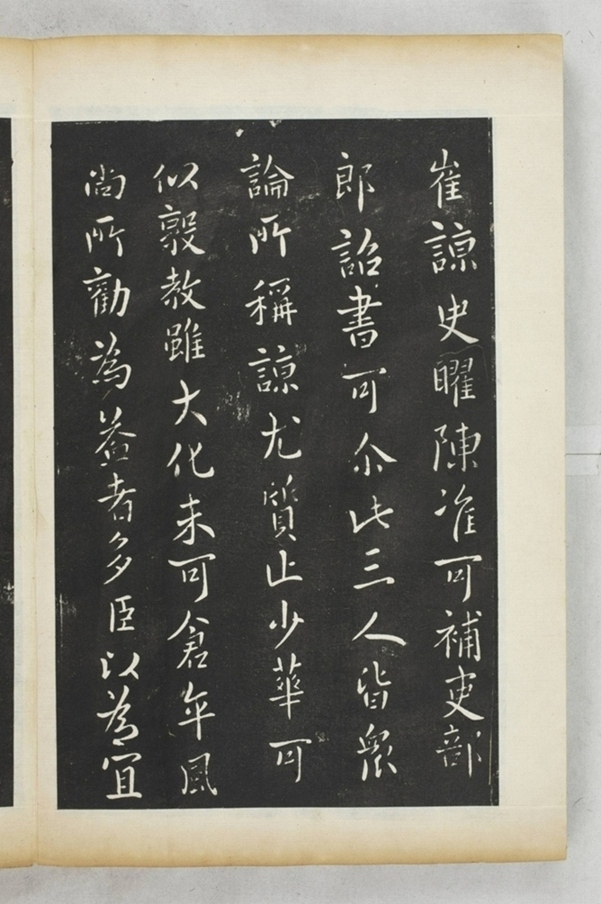 崔諒史曜陳准可補吏部
郎詔書可尒此三人皆衆
論所稱諒尤質止少華可
以敦教雖大化未可倉卒風
尚所勸為益者多臣以為宜